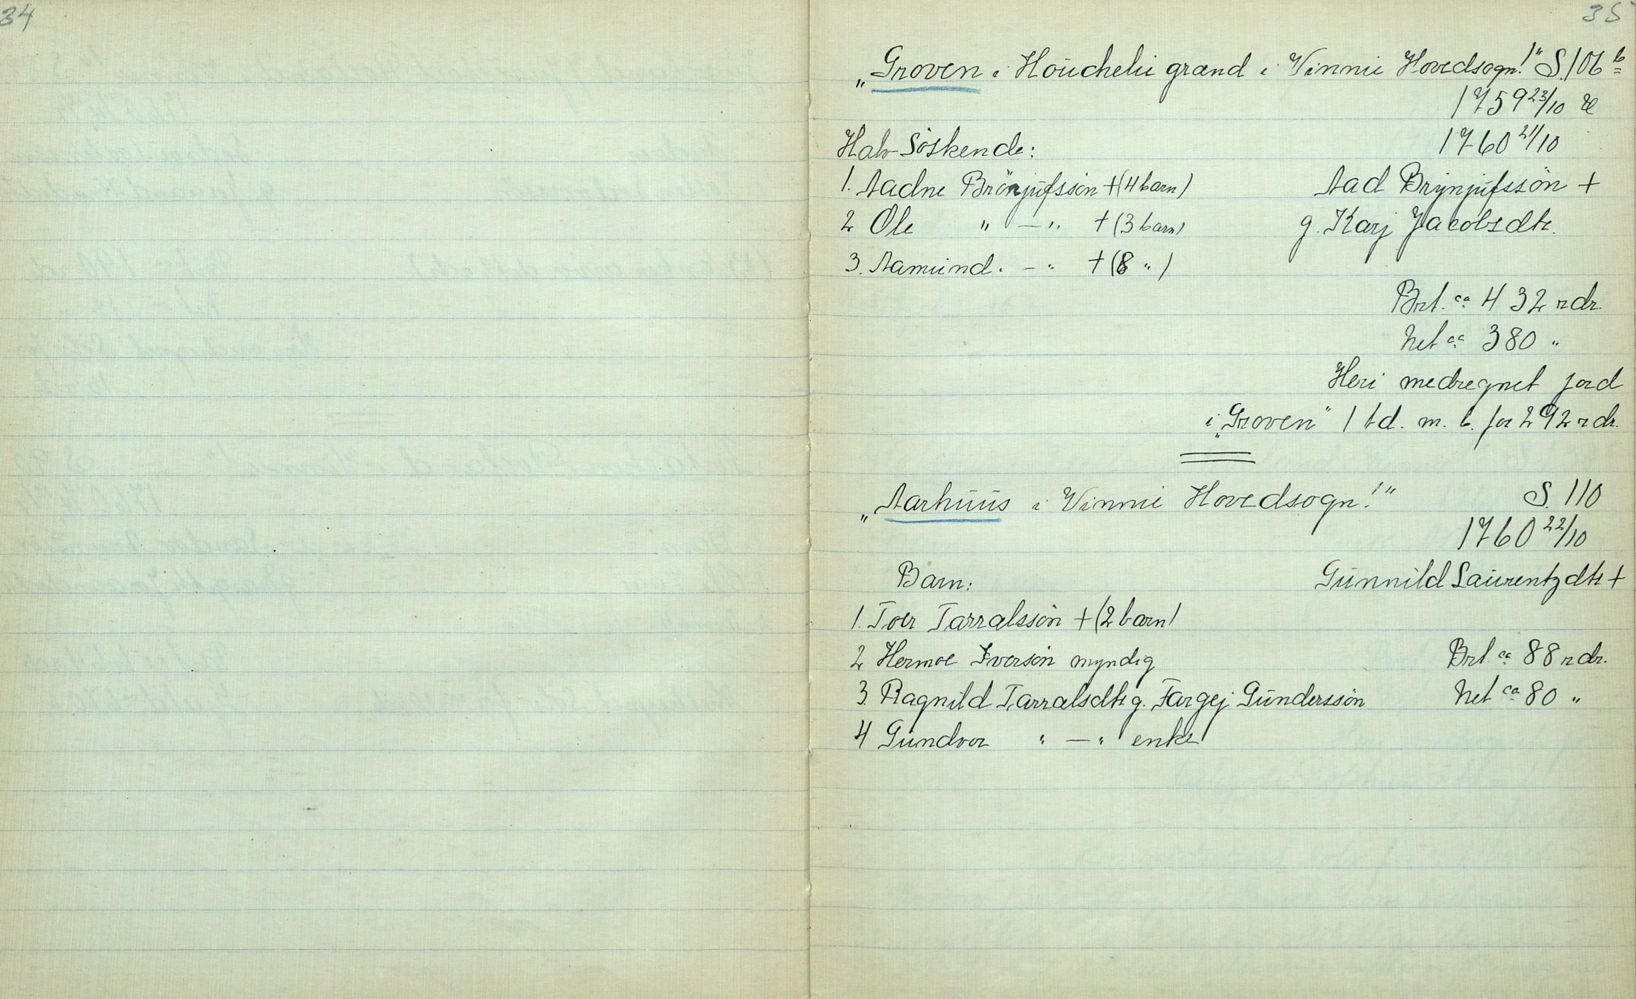 34
35
„Groven i Houchelii grand i Vinnie Hovedsogn!" S. 106 b
1759 23/10 &
1760 21/10
Halv Söskende:
1. Aadne Brönjufssön + (4 barn) Aad Brynjufssön +
2 Ole " — " + (3 barn) g. Karj Jacobsdtr.
3. Aamund. — " + (8 ")
Brt. ca 432 rdr.
Net ca 380 "
Heri medregnet jord
i „Groven" 1 td. m. b. for 292 rdr.
„Aarhuus i Vinnie Hovedsogn!" S. 110
1760 22/10
Barn: Gunnild Laurentzdtr +
1. Toer Tarralssön + (2 barn)
2 Hermoe Iversön myndig Brt ca 88 rdr.
3. Ragnild Tarralsdtr g. Targej Gunderssön Net ca 80 "
4 Gundvor " — " enke